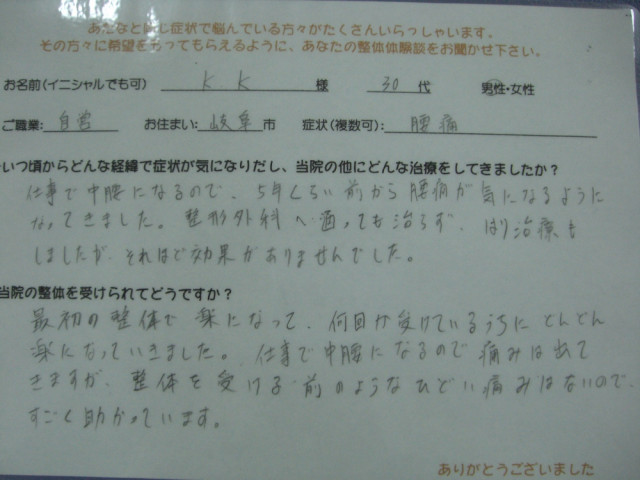 あなたと同じ症状で悩んでいる方々がたくさんいらっしゃいます。
その方々に希望をもってもらえるように、あなたの整体体験談をお聞かせ下さい。
お名前(イニシャルでも可) K K 様 30 代 男性・女性
ご職業: 自営 お住まい: 岐阜 市 症状(複数可): 腰痛
いつ頃からどんな経緯で症状が気になりだし、当院の他にどんな治療をしてきましたか?
仕事で中腰になるので、5年くらい前から腰痛が気になるように
なってきました。整形外科へ通っても治らず、はり治療も
しましたが、それほど効果がありませんでした。
当院の整体を受けられてどうですか?
最初の整体で楽になって、何回か受けているうちにどんどん
楽になっていきました。仕事で中腰になるので痛みは出て
きますが、整体を受ける前のようなひどい痛みはないので、
すごく助かっています。
ありがとうございました